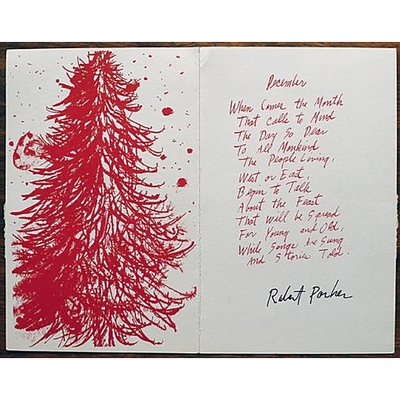 December
When Comes the Month
That calls to Mind
The Day So Dear
To All Mankind
The People Loving,
West or East,
Begin to Talk
About the Feast
That Will be Spread
For Young and Old,
While Songs are Sung
And Stories Told.
Robert Parker